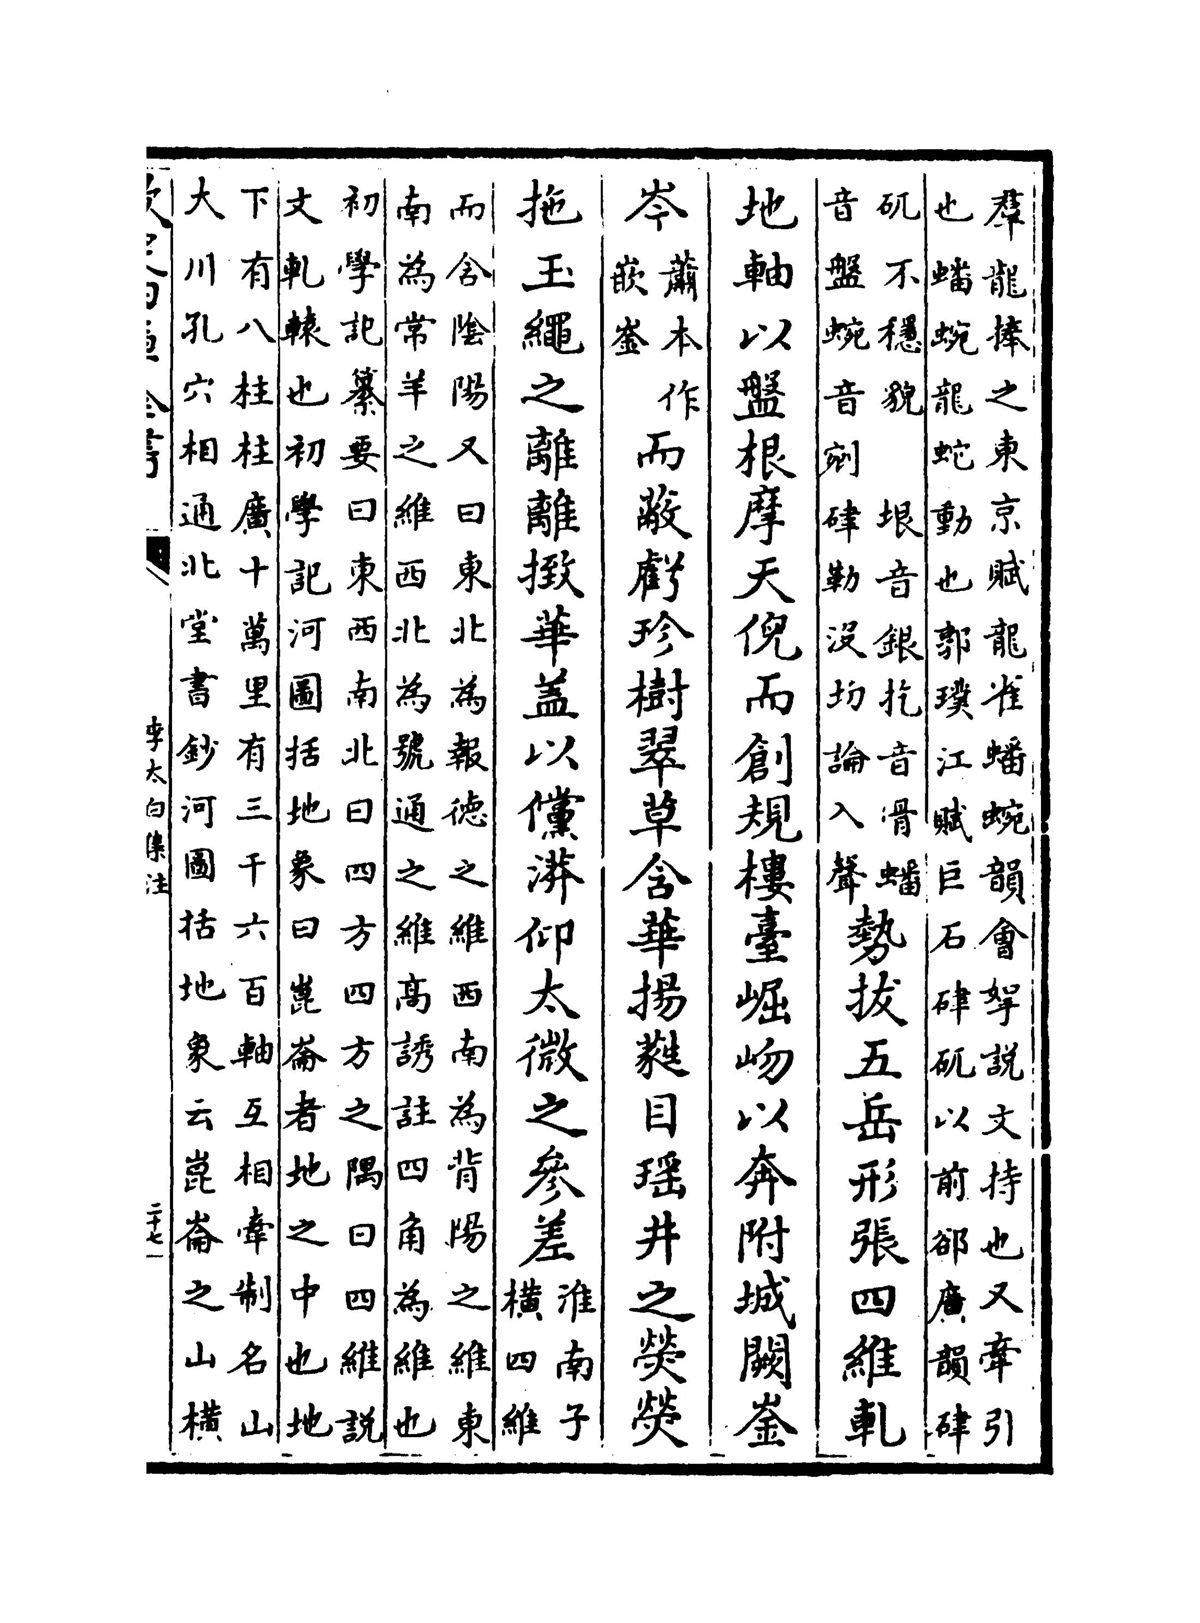 羣龍捧之東京賦龍雀蟠蜿韻會拏説文持也又牽引
也蟠蜿龍蛇動也郭璞江賦巨石硉矹以前郤廣韻硉
矹不穩貌 垠音銀扢音滑蟠
音盤蜿音剜硉勒没切論入聲
勢拔五岳形張四維軋
地軸以盤根摩天倪而創規樓臺崛岉以奔附城闕崟
岑
蕭本作
嵌崟
而蔽虧珍樹翠草含華揚蕤目瑶井之熒熒
拖玉繩之離離㨖華盖以儻漭仰太微之參差
淮南子
橫四維
而含陰陽又曰東北為報徳之維西南為背陽之維東
南為常羊之維西北為號通之維髙誘註四角為維也
初學記纂要曰東西南北曰四方四方之隅曰四維説
文軋轅也初學記河圖括地象曰崑崙者地之中也地
下有八柱柱廣十萬里有三千六百軸互相牽制名山
大川孔穴相通北堂書鈔河圖括地象云崑崙之山橫
欽定四庫全書
李太白集注
二十七